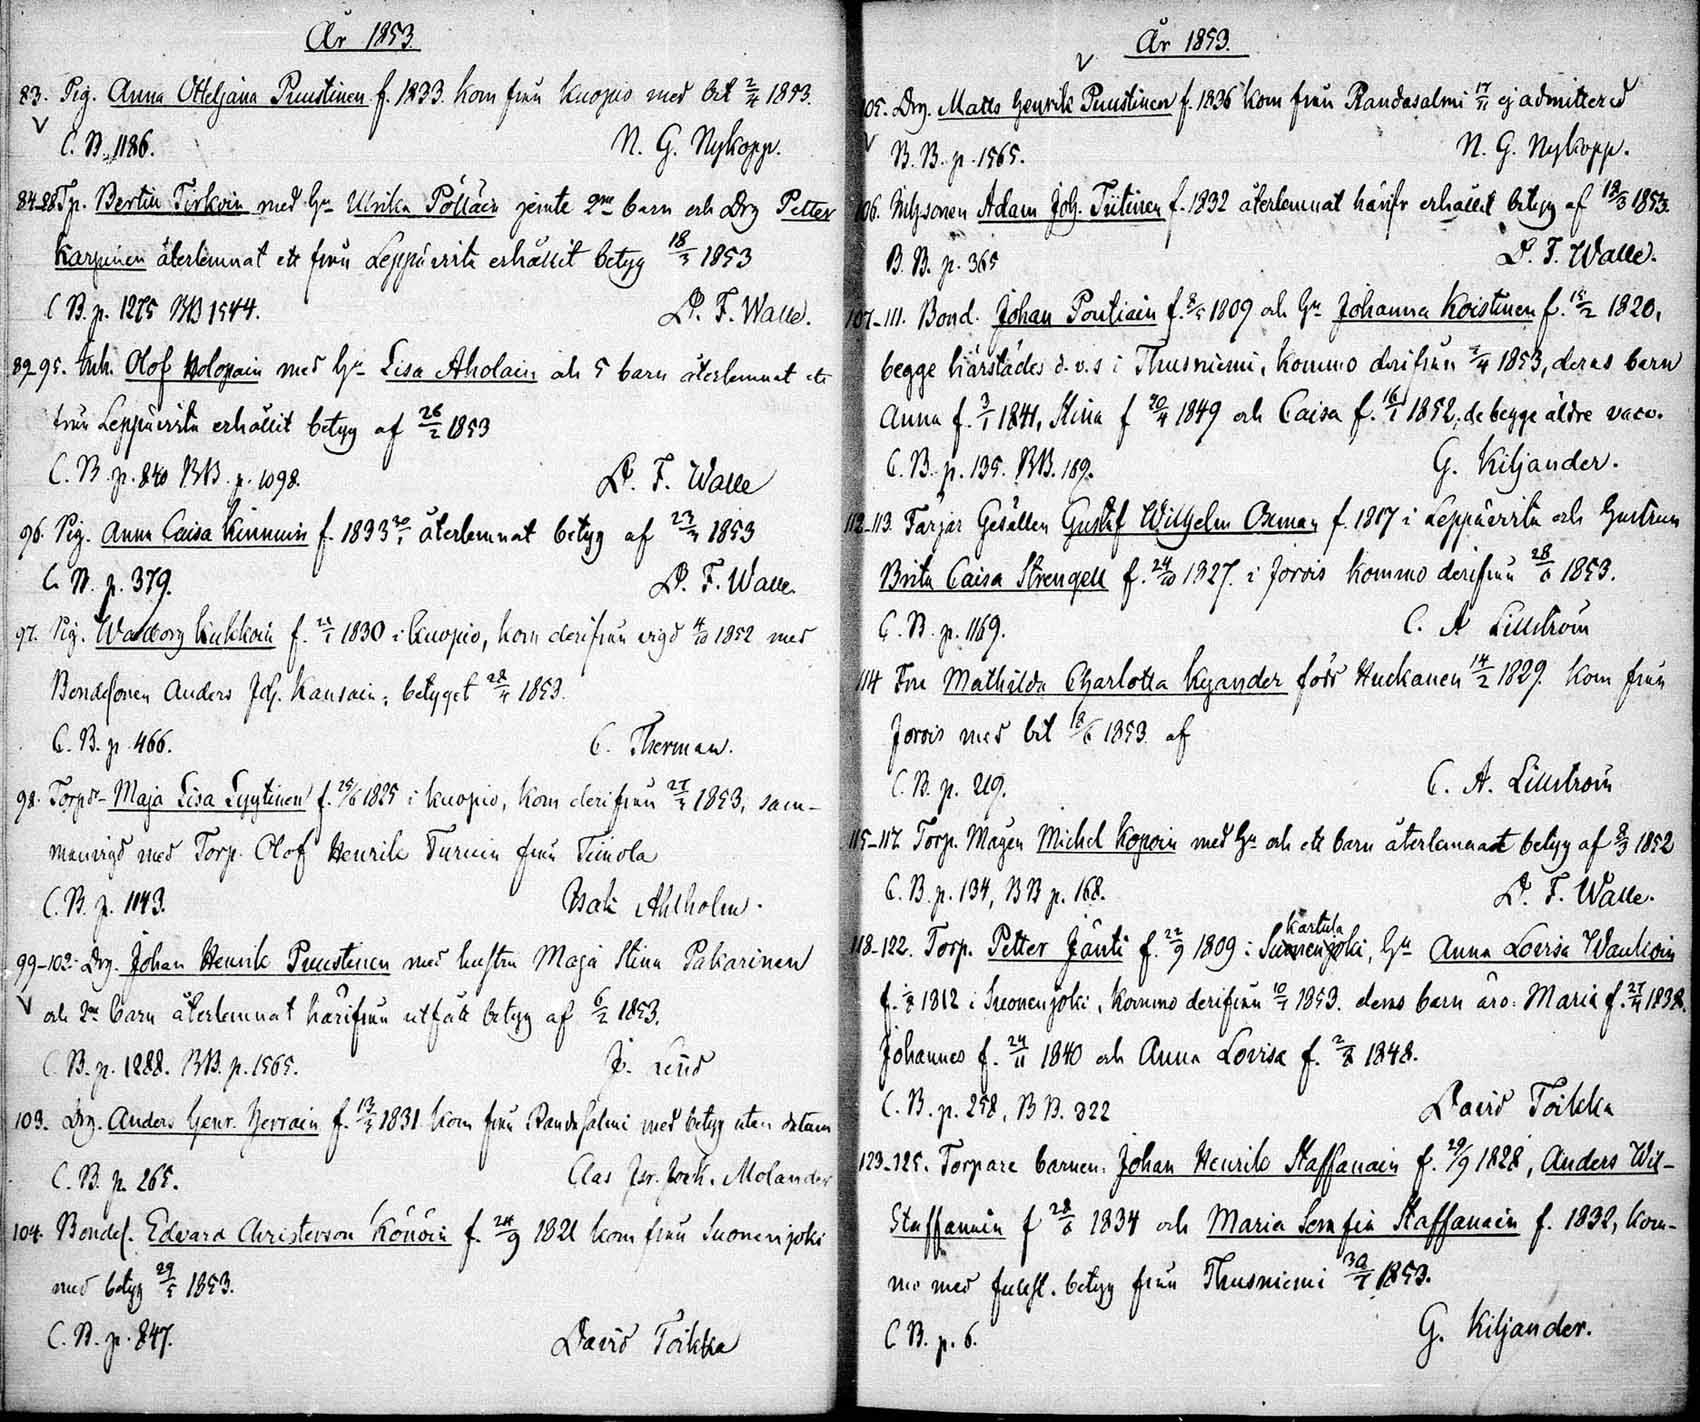 År 1853.
83. Pig. Anna Otteljana Puustinen f. 1833. kom från Kuopio med bet 2/4 1853.
C. B. 1186. N. G. Nykopp.
84-88 Tp. Bertin Tirkoin med Hu Ulrika Pölläin jemte 2ne barn och Drg Petter
Karpinen återlemnat ett från Leppävirta erhållit betyg 18/3 1853
C B. p. 1275 BB 1544. D. F. Walle.
89-95. Inh. Olof Holopain med Hu Lisa Aholain och 5 barn återlemnat ett
från Leppävirta erhållit betyg af 26/2 1853
C. B. p. 840 BB. p. 1098. D. F. Walle
96. Pig. Anna Caisa Kinnuin f. 1833 återlemnat betyg af 1853
C. B. p. 379. D. F. Walle.
97. Pig. Walborg Kukkoin f. 1830 i Kuopio, kom derifrån vigd 4/10 1852 med
Bondesonen Anders Joh. Kansain; betyget 1853.
C. B. p. 466. C. Therman.
98. Torpdr- Maja Lisa Lyytinen f. 25/6 1825 i Kuopio, kom derifrån 1853, sam-
manvigd med Torp. Olof Henrik Turuin från Timola
C. B. p. 1143. Isak Ahlholm.
99-102. Drg. Johan Henrik Puustinen med hustru Maja Stina Pakarinen
och 2ne barn återlemnat härifrån utfått betyg af 6/2 1853.
C. B. p. 1288. BB. p. 1565. J.
103. Drg. Anders Henr. f. 1831 kom från Randasalmi med betyg utan datum
C. B. p. 265. Clas Molander
104. Bondes. Edvard Christersson Könöin f. 24/9 1821 kom från Suonenjoki
med betyg 29/5 1853.
C. B. p. 847. David Toikka
År 1853.
105. Drg. Matts Henrik Puustinen f. 1836 kom från Randasalmi ej admitterad
B. B. p. 1565. N. G. Nykopp.
106. Adam Joh. Tiitinen f. 1832 återlemnat härifr erhållit betyg af 1853.
B. B. p. 365 D. F. Walle.
107-111. Bond. Johan Pontiain f. 1809 och Hu Johanna Koistinen f. 1820,
begge härstädes d. v. s i Thusniemi, kommo derifrån 1853, deras barn
Anna f. 1841, Stina f 20/4 1849 och Caisa f. 16/1 1852, de begge äldre vacc.
C. B. p. 135. BB. 169. G. Kiljander.
112-113. Färjar Gesällen Gustaf Wilhelm Oxman f. 1817 i Leppävirta och hustrun
Brita Caisa Strengell f. 24/10 1827. i Jorois kommo derifrån 28/6 1853.
C. B. p. 1169. C. A Lillström
114 Fru Mathilda Charlotta Kyander född Huckanen 14/2 1829. kom från
Jorois med bet 18/6 1853. af
C. B. p. 219. C. A. Lillström
115-117. Torp. Mågen Michel Kopoin med Hu och ett barn återlemnadt betyg af 1852
C. B. p. 134, BB p. 168. D. F. Walle.
118-122. Torp. Petter Jänti f. 22/9 1809 i Suonenjoki, Karttula Hu Anna Lovisa Waulioin
f. 1812 i Suonenjoki, kommo derifrån 1853. deras barn äro: Maria f. 1838.
Johannes f. 24/11 1840 och Anna Lovisa f. 1848.
C. B. p. 258, BB. 322 David Toikka
123-125. Torpare barnen: Johan Henrik Staffanain f. 29/9 1828, Anders Wil-
Staffanain f 28/6 1834 och Maria Serafia Staffanain f. 1832, kom-
mo med fullst. betyg från Thusniemi 1853.
C B. p. 6. G. Kiljander.